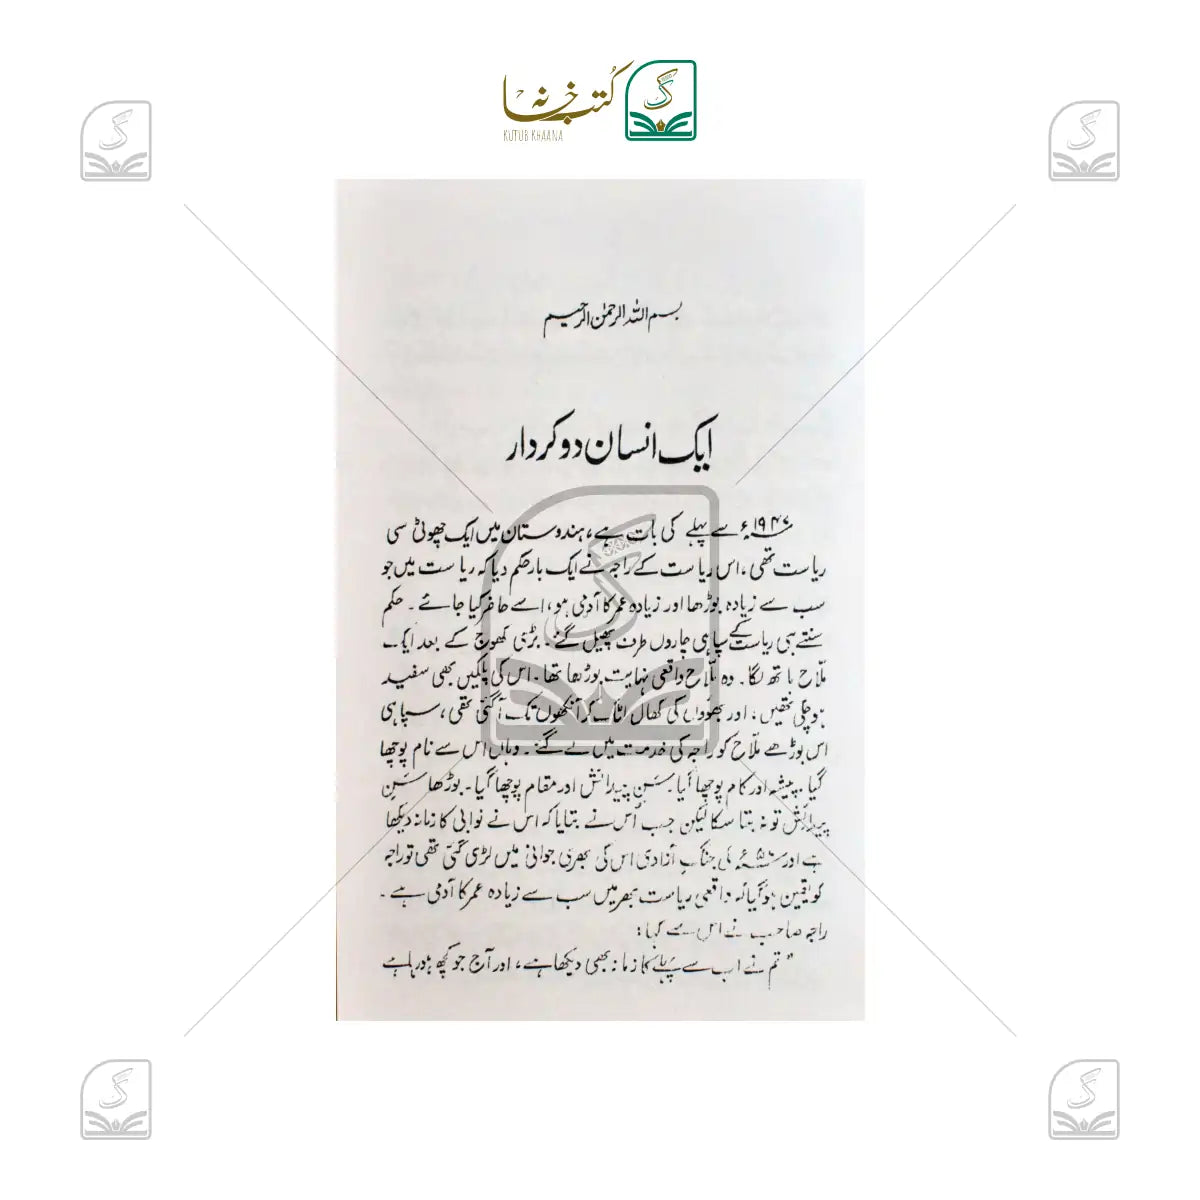 کتب خانہ
KUTUB KHAANA
بسم اللہ الرحمٰن الرحیم
ایک انسان دو کردار
۱۹۴۷ء سے پہلے کی بات ہے، ہندوستان میں ایک چھوٹی سی
ریاست تھی، اس ریاست کے راجہ نے ایک بار حکم دیا کہ ریاست میں جو
سب سے زیادہ بوڑھا اور زیادہ عمر کا آدمی ہو، اسے حاضر کیا جائے۔ حکم
سنتے ہی ریاست کے سپاہی چاروں طرف پھیل گئے۔ بڑی کھوج کے بعد ایک
ملّاح ہاتھ لگا۔ وہ ملّاح واقعی نہایت بوڑھا تھا۔ اس کی پلکیں بھی سفید
ہو چلی تھیں، اور بھوؤں کی کھال لٹک کر آنکھوں تک آ گئی تھی، سپاہی
اس بوڑھے ملّاح کو راجہ کی خدمت میں لے گئے۔ وہاں اس سے نام پوچھا
گیا۔ پیشہ اور کام پوچھا گیا سَنِ پیدائش اور مقام پوچھا گیا۔ بوڑھا سَنِ
پیدائش تو نہ بتا سکا لیکن جب اُس نے بتایا کہ اس نے نوابی کا زمانہ دیکھا
ہے اور کی جنگِ آزادی اس کی بھری جوانی میں لڑی گئی تھی تو راجہ
کو یقین ہو گیا کہ واقعی ریاست بھر میں سب سے زیادہ عمر کا آدمی ہے۔
راجہ صاحب نے اس سے کہا:
" تم نے اب سے پہلے کا زمانہ بھی دیکھا ہے، اور آج جو کچھ ہو رہا ہے